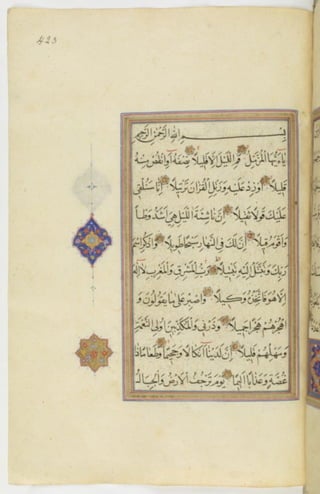 423
بِسْمِ اللهِ الرَّحْمٰنِ الرَّحِيمِ
يَا أَيُّهَا الْمُزَّمِّلُ قُمِ اللَّيْلَ إِلَّا قَلِيلًا نِصْفَهُ أَوِ انْقُصْ مِنْهُ
قَلِيلًا أَوْ زِدْ عَلَيْهِ وَرَتِّلِ الْقُرْآنَ تَرْتِيلًا إِنَّا سَنُلْقِي
عَلَيْكَ قَوْلًا ثَقِيلًا إِنَّ نَاشِئَةَ اللَّيْلِ هِيَ أَشَدُّ وَطْأً
وَأَقْوَمُ قِيلًا إِنَّ لَكَ فِي النَّهَارِ سَبْحًا طَوِيلًا وَاذْكُرِ اسْمَ
رَبِّكَ وَتَبَتَّلْ إِلَيْهِ تَبْتِيلًا رَبُّ الْمَشْرِقِ وَالْمَغْرِبِ لَا إِلٰهَ
إِلَّا هُوَ فَاتَّخِذْهُ وَكِيلًا وَاصْبِرْ عَلَى مَا يَقُولُونَ وَ
اهْجُرْهُمْ هَجْرًا جَمِيلًا وَذَرْنِي وَالْمُكَذِّبِينَ أُولِي النَّعْمَةِ
وَمَهِّلْهُمْ قَلِيلًا إِنَّ لَدَيْنَا أَنْكَالًا وَجَحِيمًا وَطَعَامًا ذَا
غُصَّةٍ وَعَذَابًا أَلِيمًا يَوْمَ تَرْجُفُ الْأَرْضُ وَالْجِبَالُ